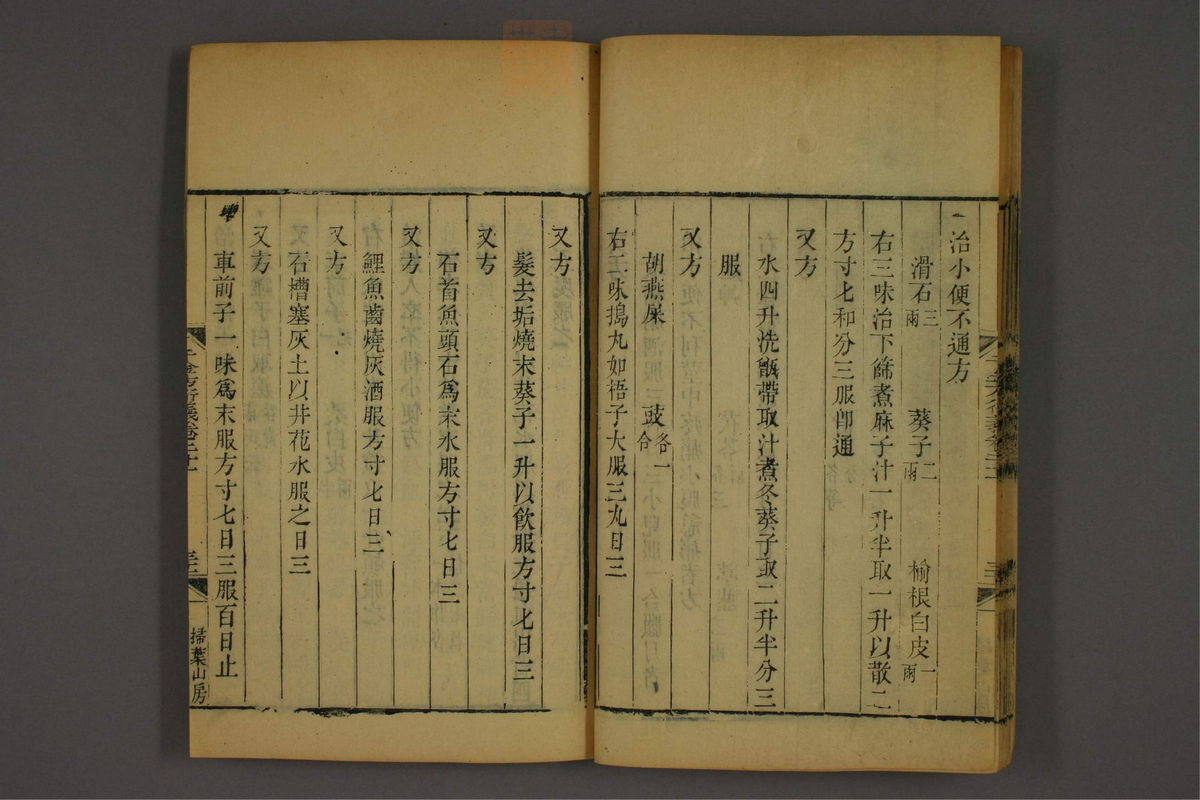 治小便不通方
滑石三兩 葵子二兩 榆根白皮一兩
右三味治下篩煮麻子汁一升半取一升以散二
方寸匕和分三服卽通
又方
水四升洗甑帶取汁煮冬葵子取二升半分三
服
又方
胡燕屎 豉各一合
右二味搗丸如梧子大服三丸日三
又方
髮去垢燒末葵子一升以飲服方寸匕日三
又方
石首魚頭石爲末水服方寸匕日三
又方
鯉魚齒燒灰酒服方寸匕日三
又方
石槽塞灰土以井花水服之日三
又方
車前子一味爲末服方寸匕日三服百日止
掃葉山房